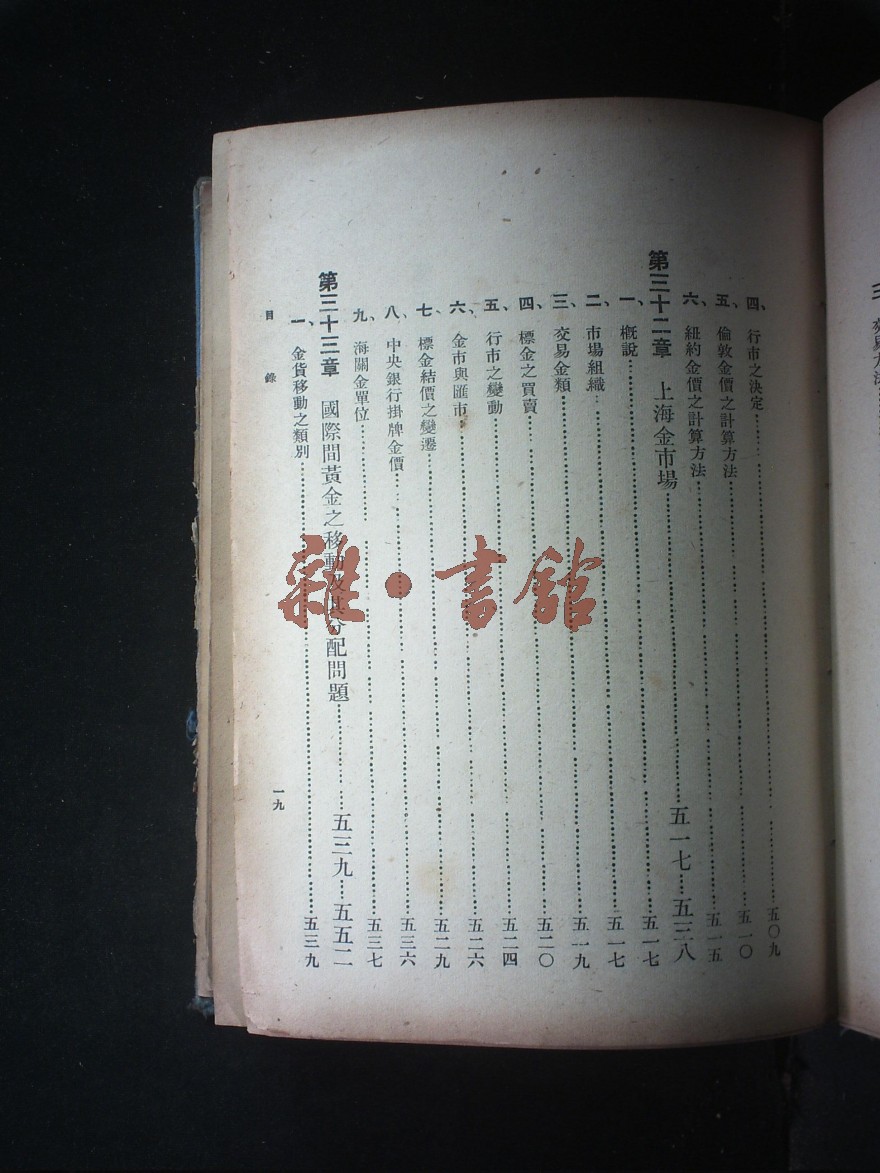 四、行市之決定……五〇九
五、倫敦金價之計算方法……五一〇
六、紐約金價之計算方法……五一五
第三十二章 上海金市場……五一七……五三八
一、概說……五一七
二、市場組織……五一七
三、交易金類……五一九
四、標金之買賣……五二〇
五、行市之變動……五二四
六、金市與匯市……五二六
七、標金結價之變遷……五二九
八、中央銀行掛牌金價……五三六
九、海關金單位……五三七
第三十三章 國際間黃金之移動及其分配問題……五三九……五五二
一、金貨移動之類別……五三九
目錄
一九
雜·書館